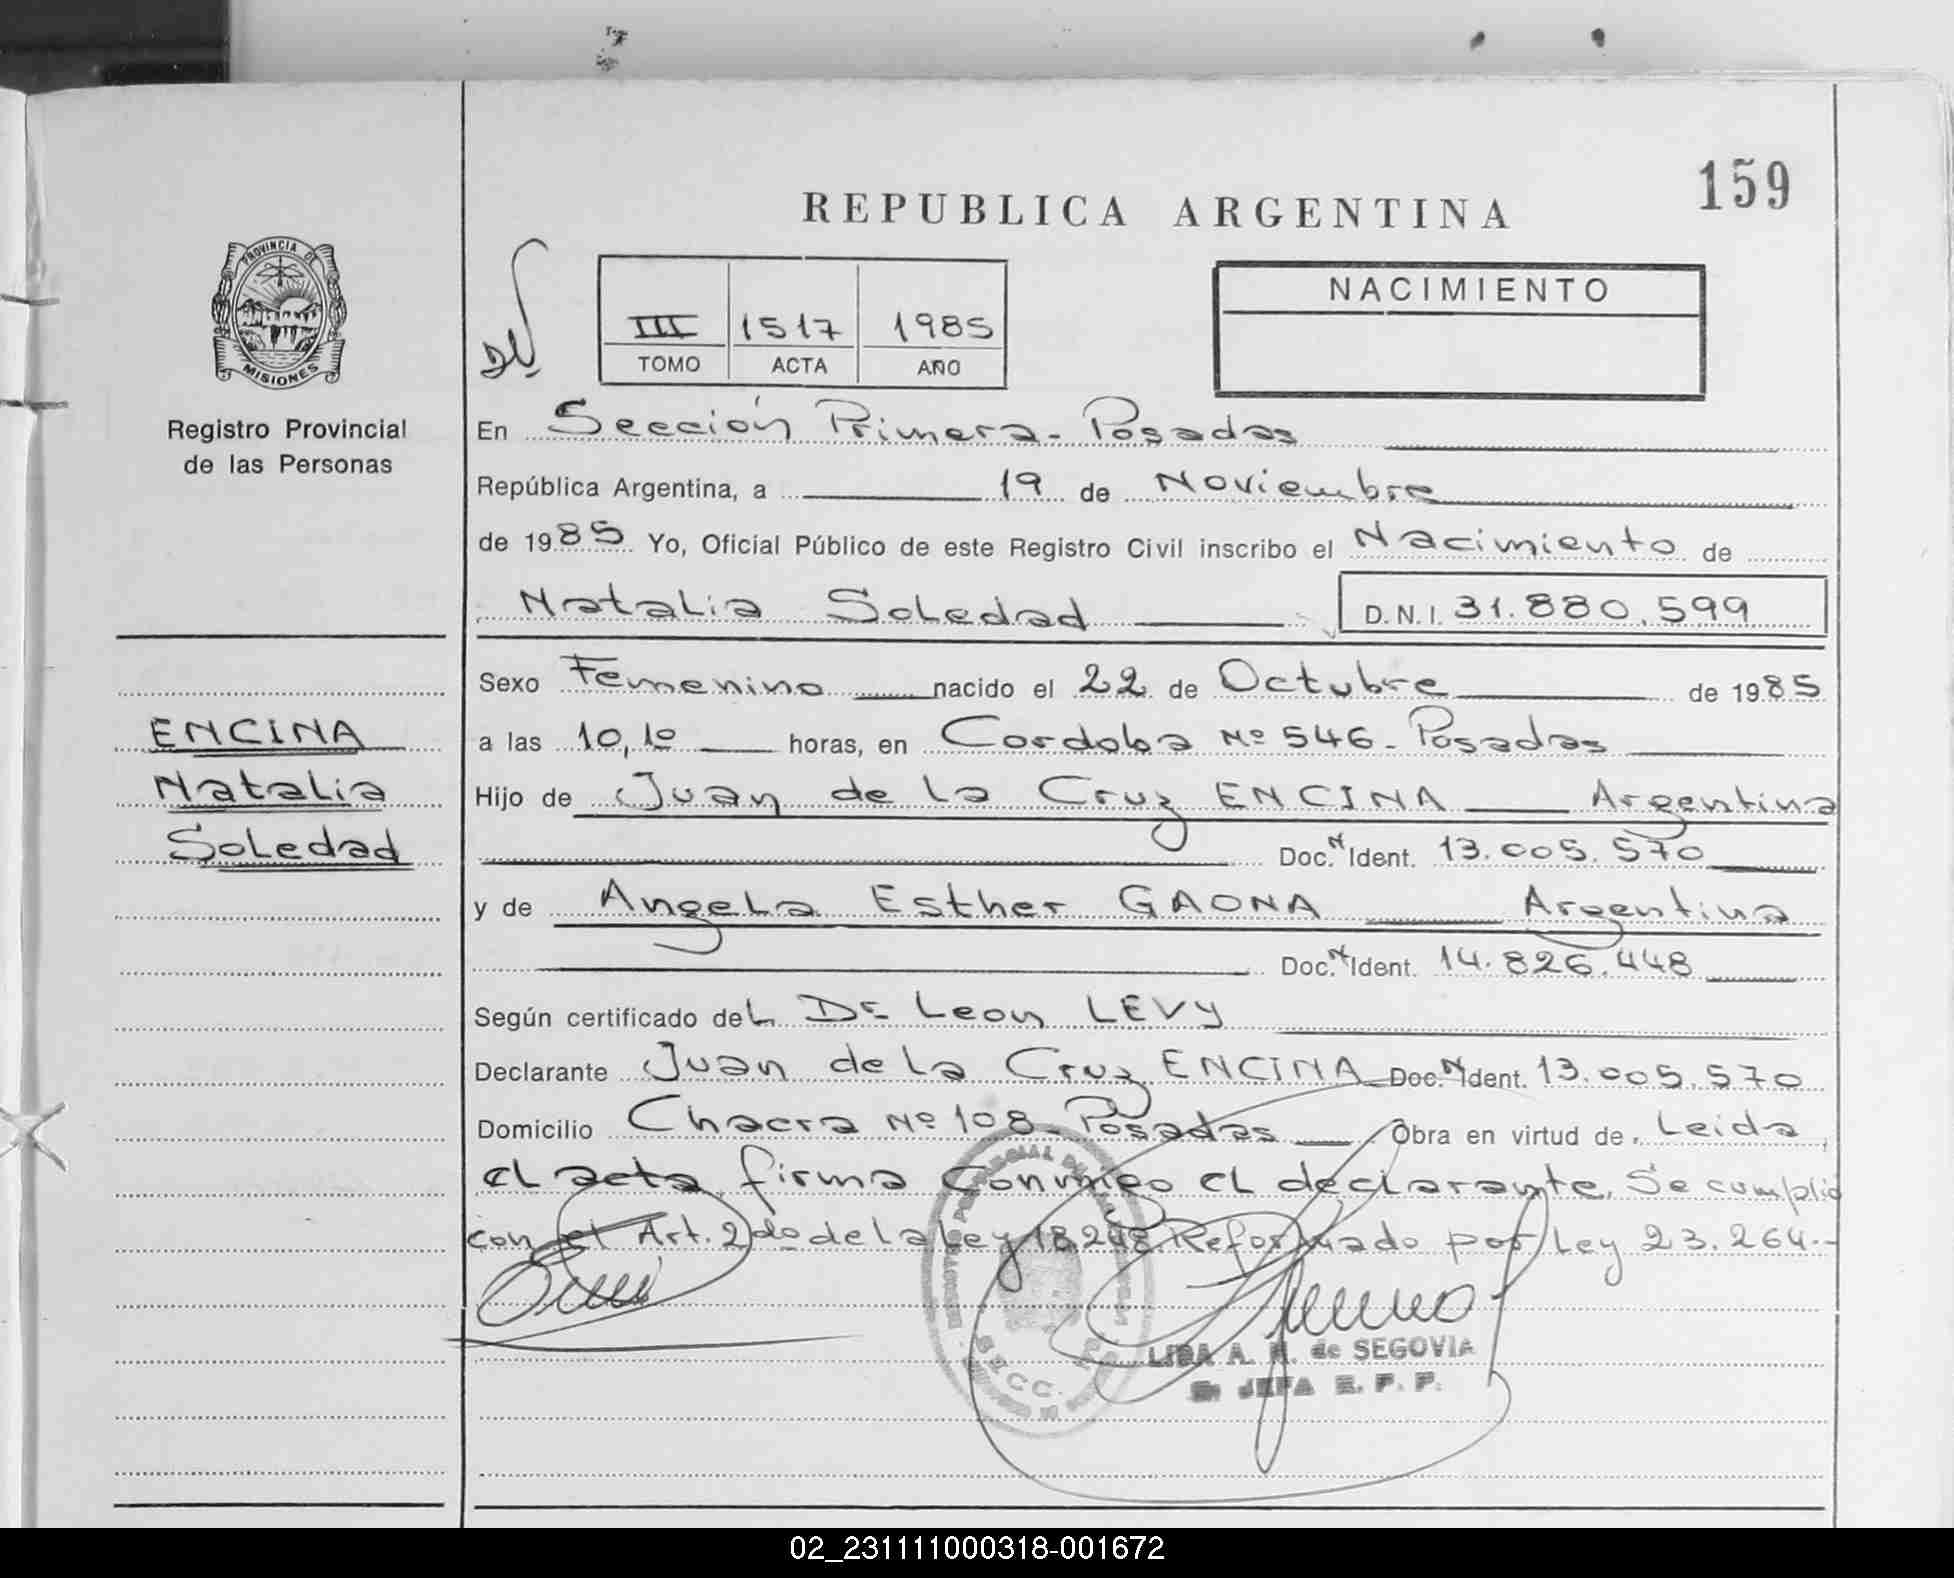 159
REPUBLICA ARGENTINA
PROVINCIA DE
MISIONES
Registro Provincial
de las Personas
III 1517 1985
TOMO ACTA AÑO
NACIMIENTO
En Sección Primera - Posadas
República Argentina, a 19 de Noviembre
de 1985 Yo, Oficial Público de este Registro Civil inscribo el Nacimiento de
Natalia Soledad D.N.I. 31.880.599
Sexo Femenino nacido el 22 de Octubre de 1985
ENCINA
Natalia
Soledad
a las 10,10 horas, en Cordoba Nº 546 - Posadas
Hijo de Juan de la Cruz ENCINA Argentina
Doc. N Ident. 13.005.570
y de Angela Esther GAONA Argentina
Doc. N Ident. 14.826.448
Según certificado del Dr Leon LEVY
Declarante Juan de la Cruz ENCINA Doc. N Ident. 13.005.570
Domicilio Chacra Nº 108 - Posadas Obra en virtud de Leida
el acta firma conmigo el declarante. Se cumplió
con el Art. 2do de la Ley 18.248 Reformado por Ley 23.264.-
SECC.
LIDA A. de SEGOVIA
JEFA R. P. P.
02_231111000318-001672